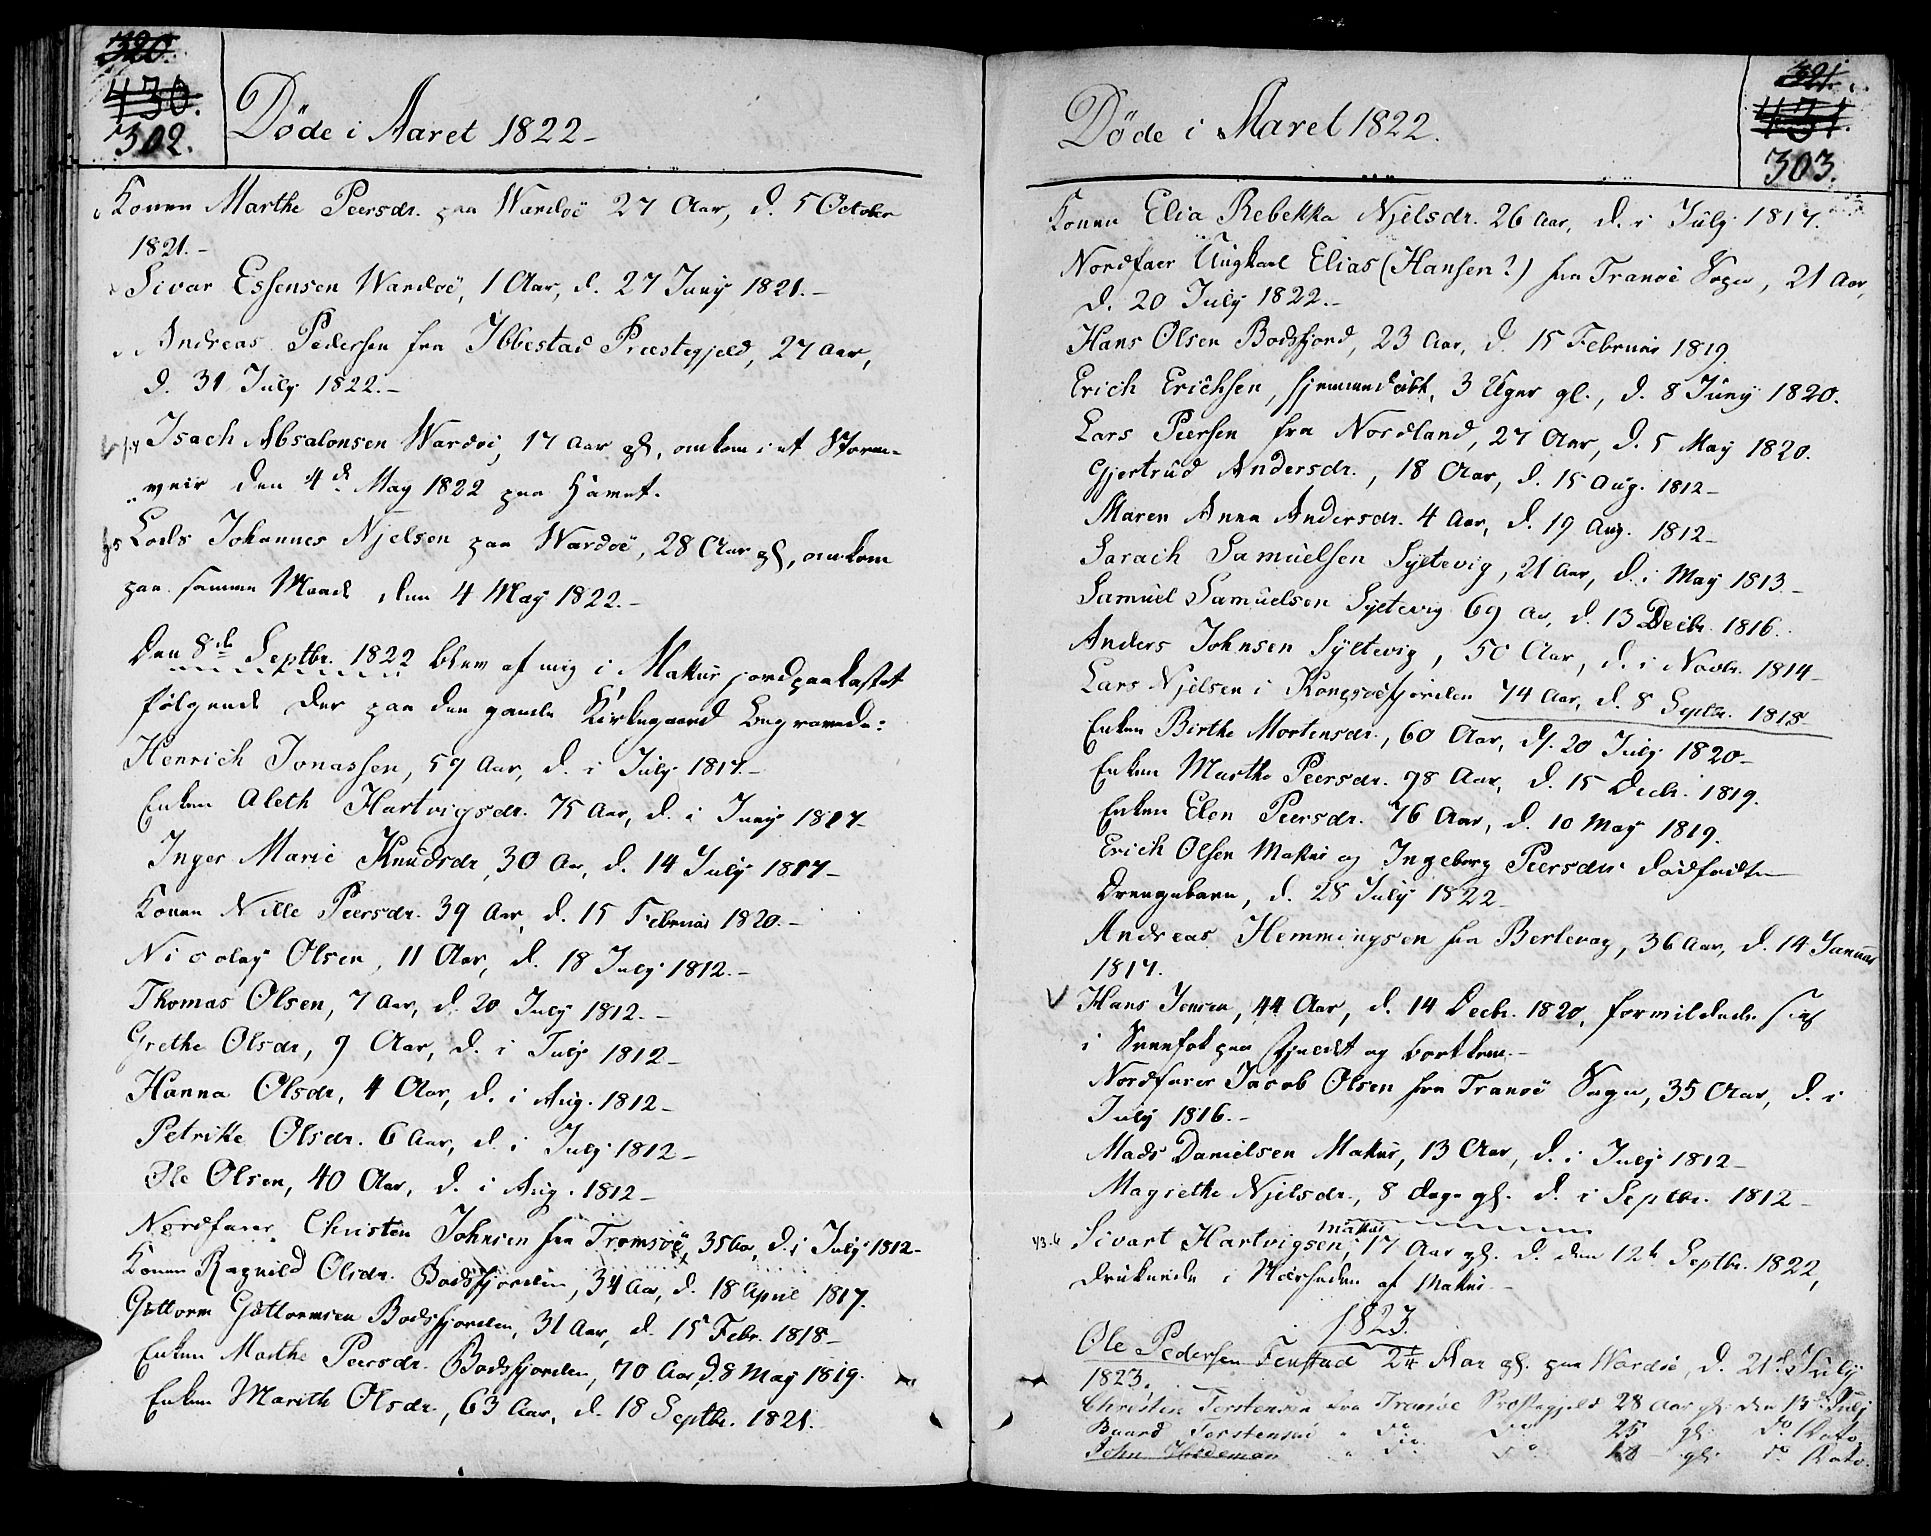 320.
430.
302.
Döde i Aaret 1822-
Konen Marthe Peersdr. paa Wardöe 27 Aar, d. 5 October
1821.-
Sivar Essensen Wardöe, 1 Aar, d. 27 Juny 1821.-
Andreas Pedersen fra Ibbestad Præstegjeld, 27 Aar,
d. 31 July 1822.-
Isach Absalonsen Wardöe, 17 Aar gl., omkom i et Storm-
veir den 4de May 1822 paa Havet.
Lods Johannes Njelsen paa Wardöe, 28 Aar gl., omkom
paa samme Maade, den 4 May 1822.-
Den 8de Septbr. 1822 blev af mig i Makur jordpaakastet
følgende der paa den gamle Kirkegaard begravede:
Henrich Jonassen, 59 Aar, d. i July 1817.-
Enken Aleth Hartvigsdr. 75 Aar, d. i Juny 1817-
Inger Marie Knudsdr, 30 Aar, d. 14 July 1817-
Konen Nille Peersdr. 39 Aar, d. 15 Februar 1820.-
Nicolay Olsen, 11 Aar, d. 18 July 1812.-
Thomas Olsen, 7 Aar, d. 20 July 1812.-
Grethe Olsdr, 9 Aar, d. i July 1812-
Hanna Olsdr, 4 Aar, d. i Aug. 1812-
Petrikke Olsdr. 6 Aar, d. i July 1812-
Ole Olsen, 40 Aar, d. i Aug. 1812-
Nordfarer Christen Johnsen fra Tromsöe, 35 Aar, d. i July 1812-
Konen Ragnild Olsdr. Baadsfjorden, 34 Aar, d. 18 April 1817.
Guttorm Guttormsen Baadsfjorden, 31 Aar, d. 15 Febr. 1818-
Enken Marthe Peersdr. Baadsfjorden, 70 Aar, d. 8 May 1819.
Enken Marith Olsdr., 63 Aar, d. 18 Septbr. 1821.
321.
431.
303.
Döde i Aaret 1822.
Konen Elia Rebekka Njelsdr. 26 Aar, d. i July 1817.
Nordfarer Ungkarl Elias (Hansen?) fra Tranöe Sogn, 21 Aar,
d. 20 July 1822.-
Hans Olsen Bodsfjord, 23 Aar, d. 15 Februar 1819.
Erich Erichsen, hjemmedøbt, 3 Uger gl., d. 8 Juny 1820.
Lars Peersen fra Nordland, 27 Aar, d. 5 May 1820.
Gjertrud Andersdr., 18 Aar, d. 15 Aug. 1812-
Maren Anna Andersdr. 4 Aar, d. 19 Aug. 1812-
Sarach Samuelsen Syltevig, 21 Aar, d. i May 1813.-
Samuel Samuelsen Syltevig 69 Aar, d. 13 Decbr. 1816.
Anders Johnsen Syltevig, 50 Aar, d. i Novbr. 1814-
Lars Njelsen i Kongsöefjorden 74 Aar, d. 8 Septbr. 1818
Enken Birthe Mortensdr., 60 Aar, d. 20 July 1820-
Enken Marthe Peersdr. 78 Aar, d. 15 Decbr. 1819.
Enken Elen Peersdr. 76 Aar, d. 10 May 1819.
Erich Olsen Makur og Ingeborg Peersdrs dødfødte
Drengebarn, d. 28 July 1822-
Andreas Hemmingsen fra Berlevag, 36 Aar, d. 14 Januar
1817.
Hans Jensen, 44 Aar, d. 14 Decbr. 1820, forvildede sig
i Sneefok paa Fjeldet og bortkom.-
Nordfarer Jacob Olsen fra Tranöe Sogn, 35 Aar, d. i
July 1816.-
Mads Danielsen Makur, 13 Aar, d. i July 1812-
Magrethe Njelsdr., 8 Dage gl. d. i Septbr. 1812-
Makur
Sivart Hartvigsen, 17 Aar gl. d. den 12te Septbr. 1822,
druknede i Nærheden af Makur.-
1823.
Ole Pedersen Fenstad 24 Aar gl. paa Wardöe, d. 21de July
1823.
Christen Torstensen fra Tranöe Præstegjeld 28 Aar gl. den 13de July
Baard Torstensen " do do 25 gl. do Dato
John Holdeman " do do gl. do Dato.